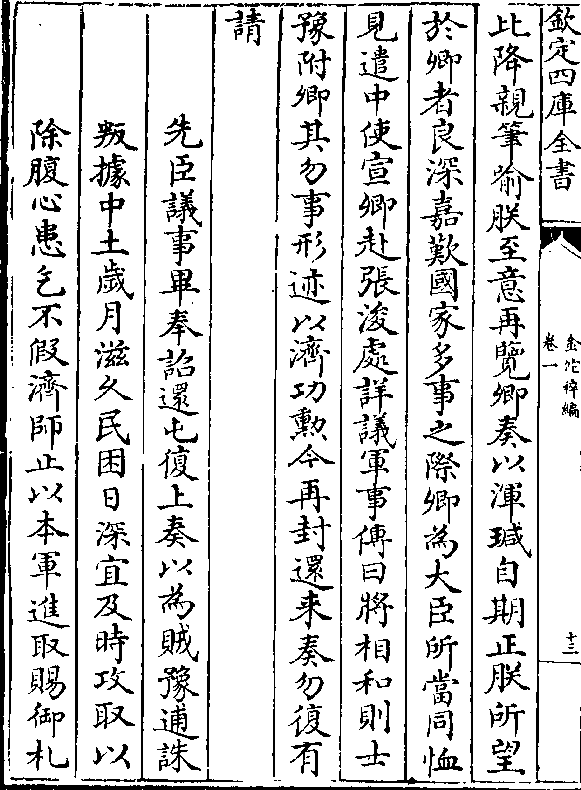 欽定四庫全書
金佗稡編
卷一
十三
比降親筆喻朕至意再覽卿奏以渾瑊自期正朕所望
於卿者良深嘉歎國家多事之際卿為大臣所當同恤
見遣中使宣卿赴張浚處詳議軍事傳曰將相和則士
豫附卿其勿事形迹以濟功勲今再封還来奏勿復有
請
先臣議事畢奉詔還屯復上奏以為賊豫逋誅
叛據中土歲月滋久民困日深宜及時攻取以
除腹心患乞不假濟師止以本軍進取賜御札